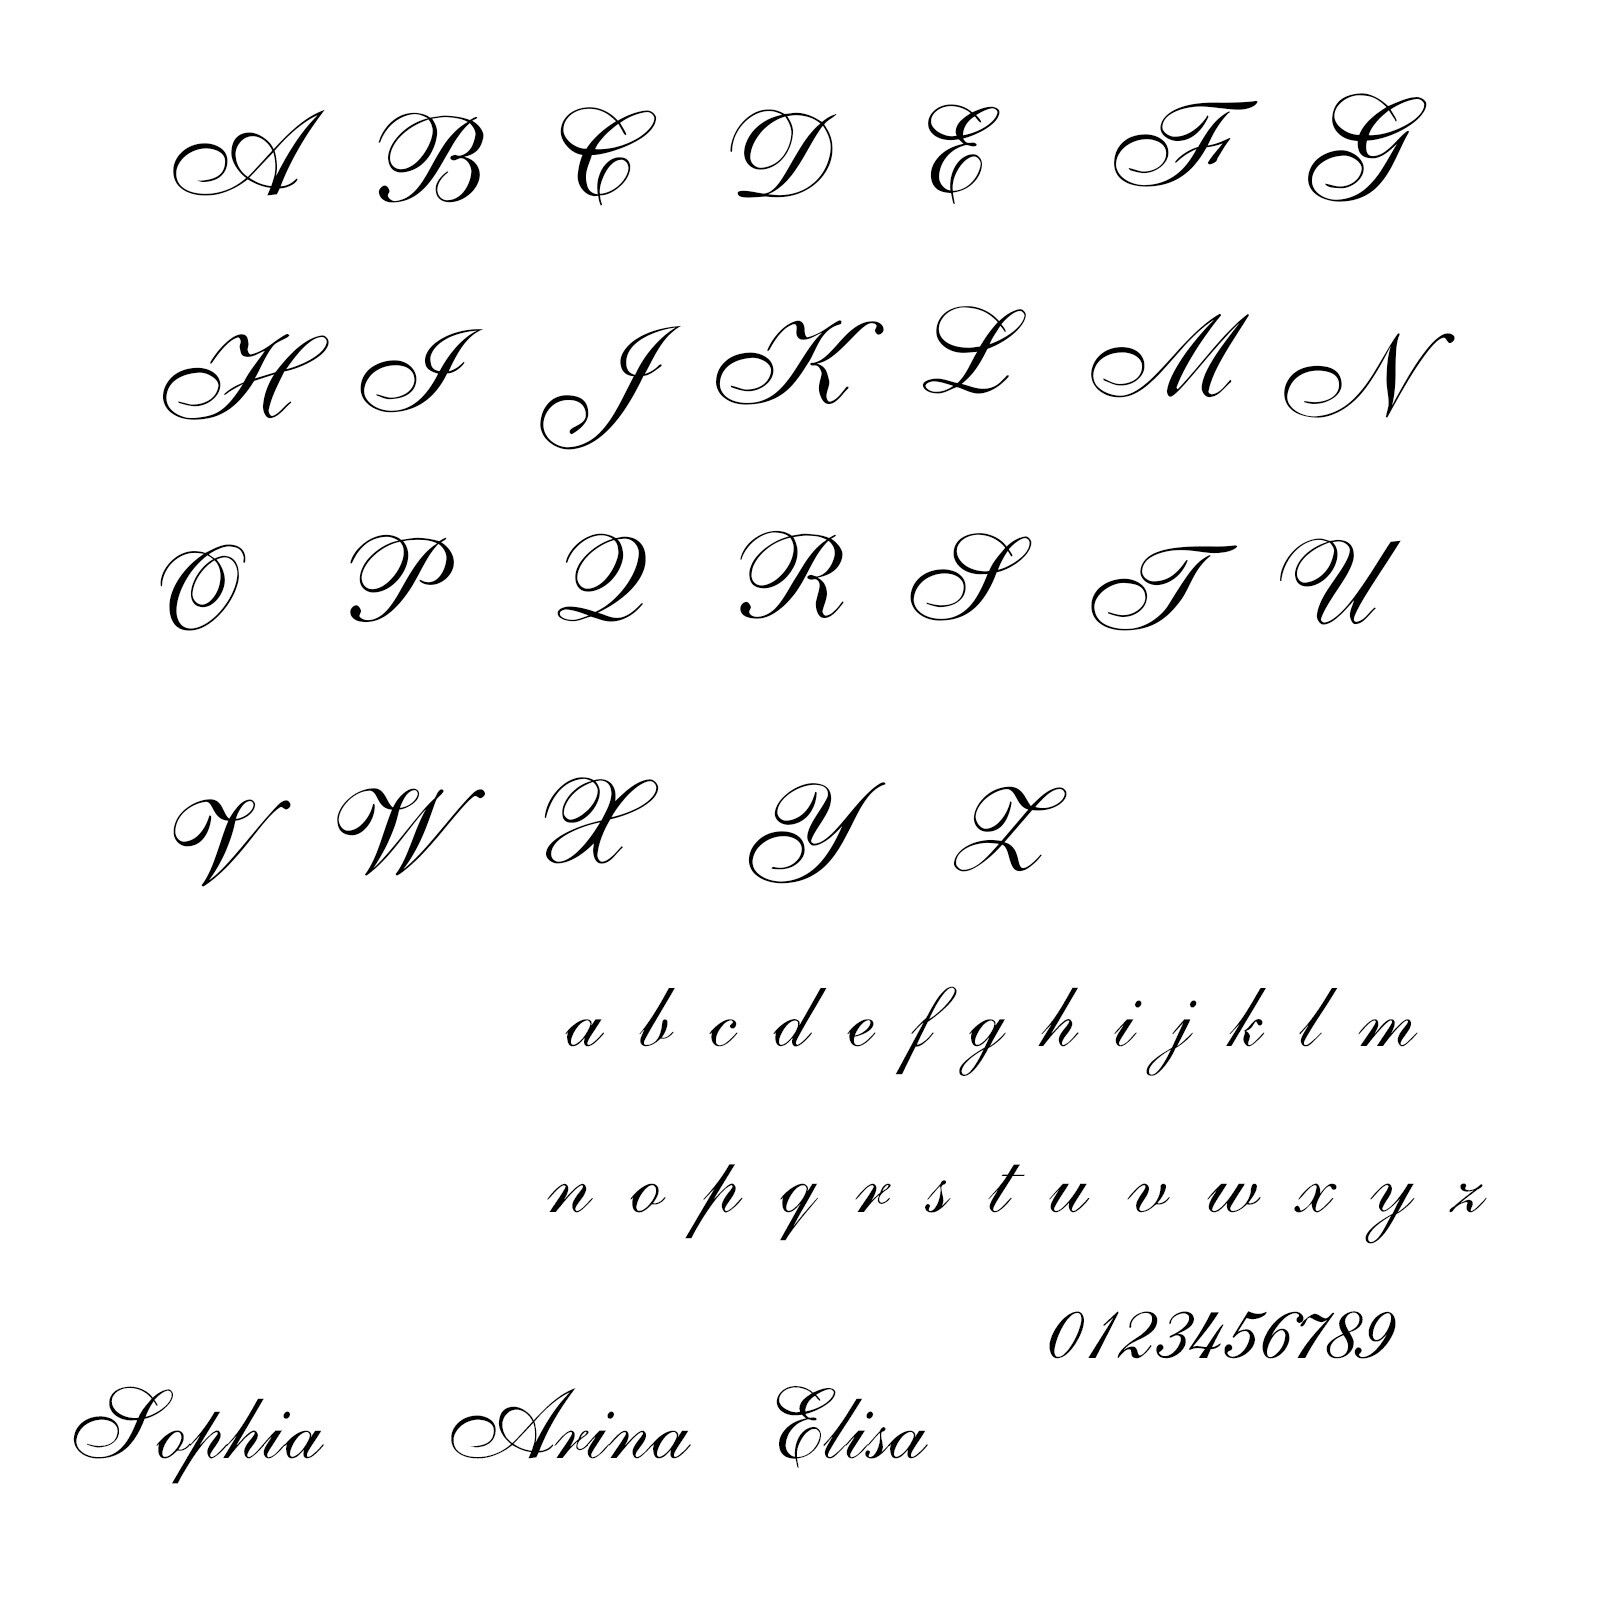 A B C D E F G
H I J K L M N
O P Q R S T U
V W X Y Z
a b c d e f g h i j k l m
n o p q r s t u v w x y z
0123456789
Sophia Arina Elisa